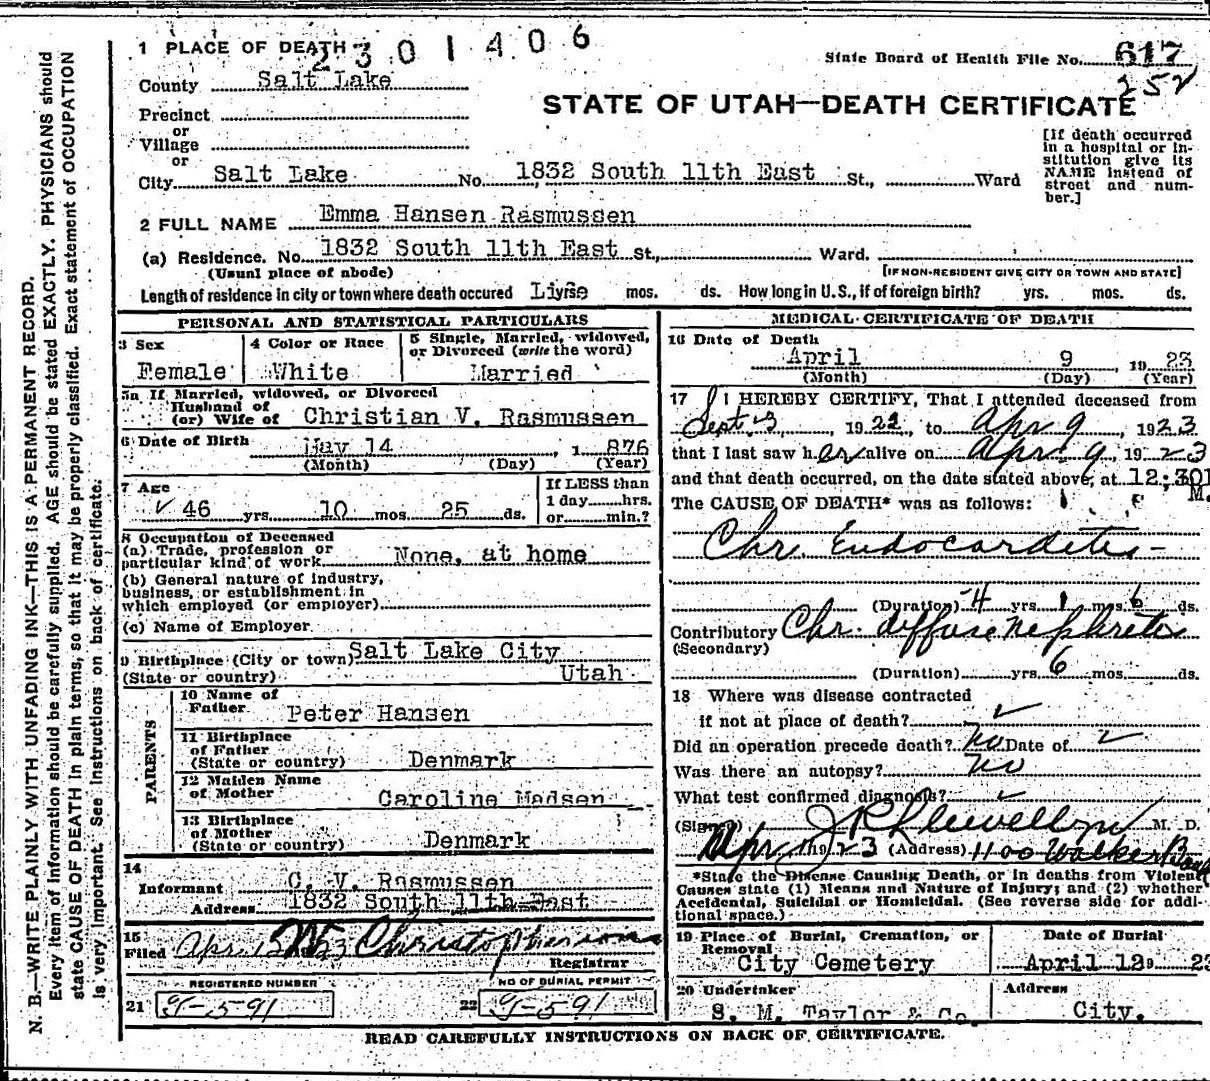 1 PLACE OF DEATH 2301406
State Board of Health File No. 617
252
County Salt Lake
STATE OF UTAH—DEATH CERTIFICATE
Precinct
or
Village
or
City Salt Lake No. 1832 South 11th East St., Ward
[If death occurred
in a hospital or in-
stitution give its
NAME instead of
street and num-
ber.]
2 FULL NAME Emma Hansen Rasmussen
(a) Residence. No. 1832 South 11th East St., Ward.
(Usual place of abode) [IF NON-RESIDENT GIVE CITY OR TOWN AND STATE]
Length of residence in city or town where death occured mos. ds. How long in U.S., if of foreign birth? yrs. mos. ds.
PERSONAL AND STATISTICAL PARTICULARS
3 Sex
Female
4 Color or Race
White
5 Single, Married, widowed,
or Divorced (write the word)
Married
5a If Married, widowed, or Divorced
Husband of
(or) Wife of Christian V. Rasmussen
6 Date of Birth May 14, 1 876
(Month) (Day) (Year)
7 Age
46 yrs. 10 mos. 25 ds.
If LESS than
1 day hrs.
or min.?
8 Occupation of Deceased
(a) Trade, profession or
particular kind of work None, at home
(b) General nature of industry,
business, or establishment in
which employed (or employer)
(c) Name of Employer
9 Birthplace (City or town) Salt Lake City
(State or country) Utah
PARENTS
10 Name of
Father Peter Hansen
11 Birthplace
of Father
(State or country) Denmark
12 Maiden Name
of Mother Caroline Madsen
13 Birthplace
of Mother
(State or country) Denmark
14
Informant C. V. Rasmussen
Address 1832 South 11th East
15
Filed Apr. 1923
Registrar
REGISTERED NUMBER
21 G-591
NO OF BURIAL PERMIT
22 G-591
MEDICAL CERTIFICATE OF DEATH
16 Date of Death
April 9 19 23
(Month) (Day) (Year)
17 I HEREBY CERTIFY, That I attended deceased from
Sept. 3, 1922, to Apr 9, 1923
that I last saw her alive on Apr. 9, 1923
and that death occurred, on the date stated above, at 12:30
M.
The CAUSE OF DEATH* was as follows:
Chr. Endocardetes-
(Duration) 4 yrs. 1 mos. 6 ds.
Contributory Chr. diffuse nephretes
(Secondary)
(Duration) yrs. 6 mos. ds.
18 Where was disease contracted
if not at place of death?
Did an operation precede death? no Date of
Was there an autopsy? no
What test confirmed diagnosis?
(Signed) J R Llewellyn M. D.
Apr 1923 (Address) 1100 Walker Bank
*State the Disease Causing Death, or in deaths from Violent
Causes state (1) Means and Nature of Injury; and (2) whether
Accidental, Suicidal or Homicidal. (See reverse side for addi-
tional space.)
19 Place of Burial, Cremation, or
Removal
City Cemetery
Date of Burial
April 12, 23
20 Undertaker
S. M. Taylor & Co.
Address
City.
READ CAREFULLY INSTRUCTIONS ON BACK OF CERTIFICATE.
N. B.—WRITE PLAINLY WITH UNFADING INK—THIS IS A PERMANENT RECORD.
Every item of information should be carefully supplied. AGE should be stated EXACTLY. PHYSICIANS should
state CAUSE OF DEATH in plain terms, so that it may be properly classified. Exact statement of OCCUPATION
is very important. See instructions on back of certificate.